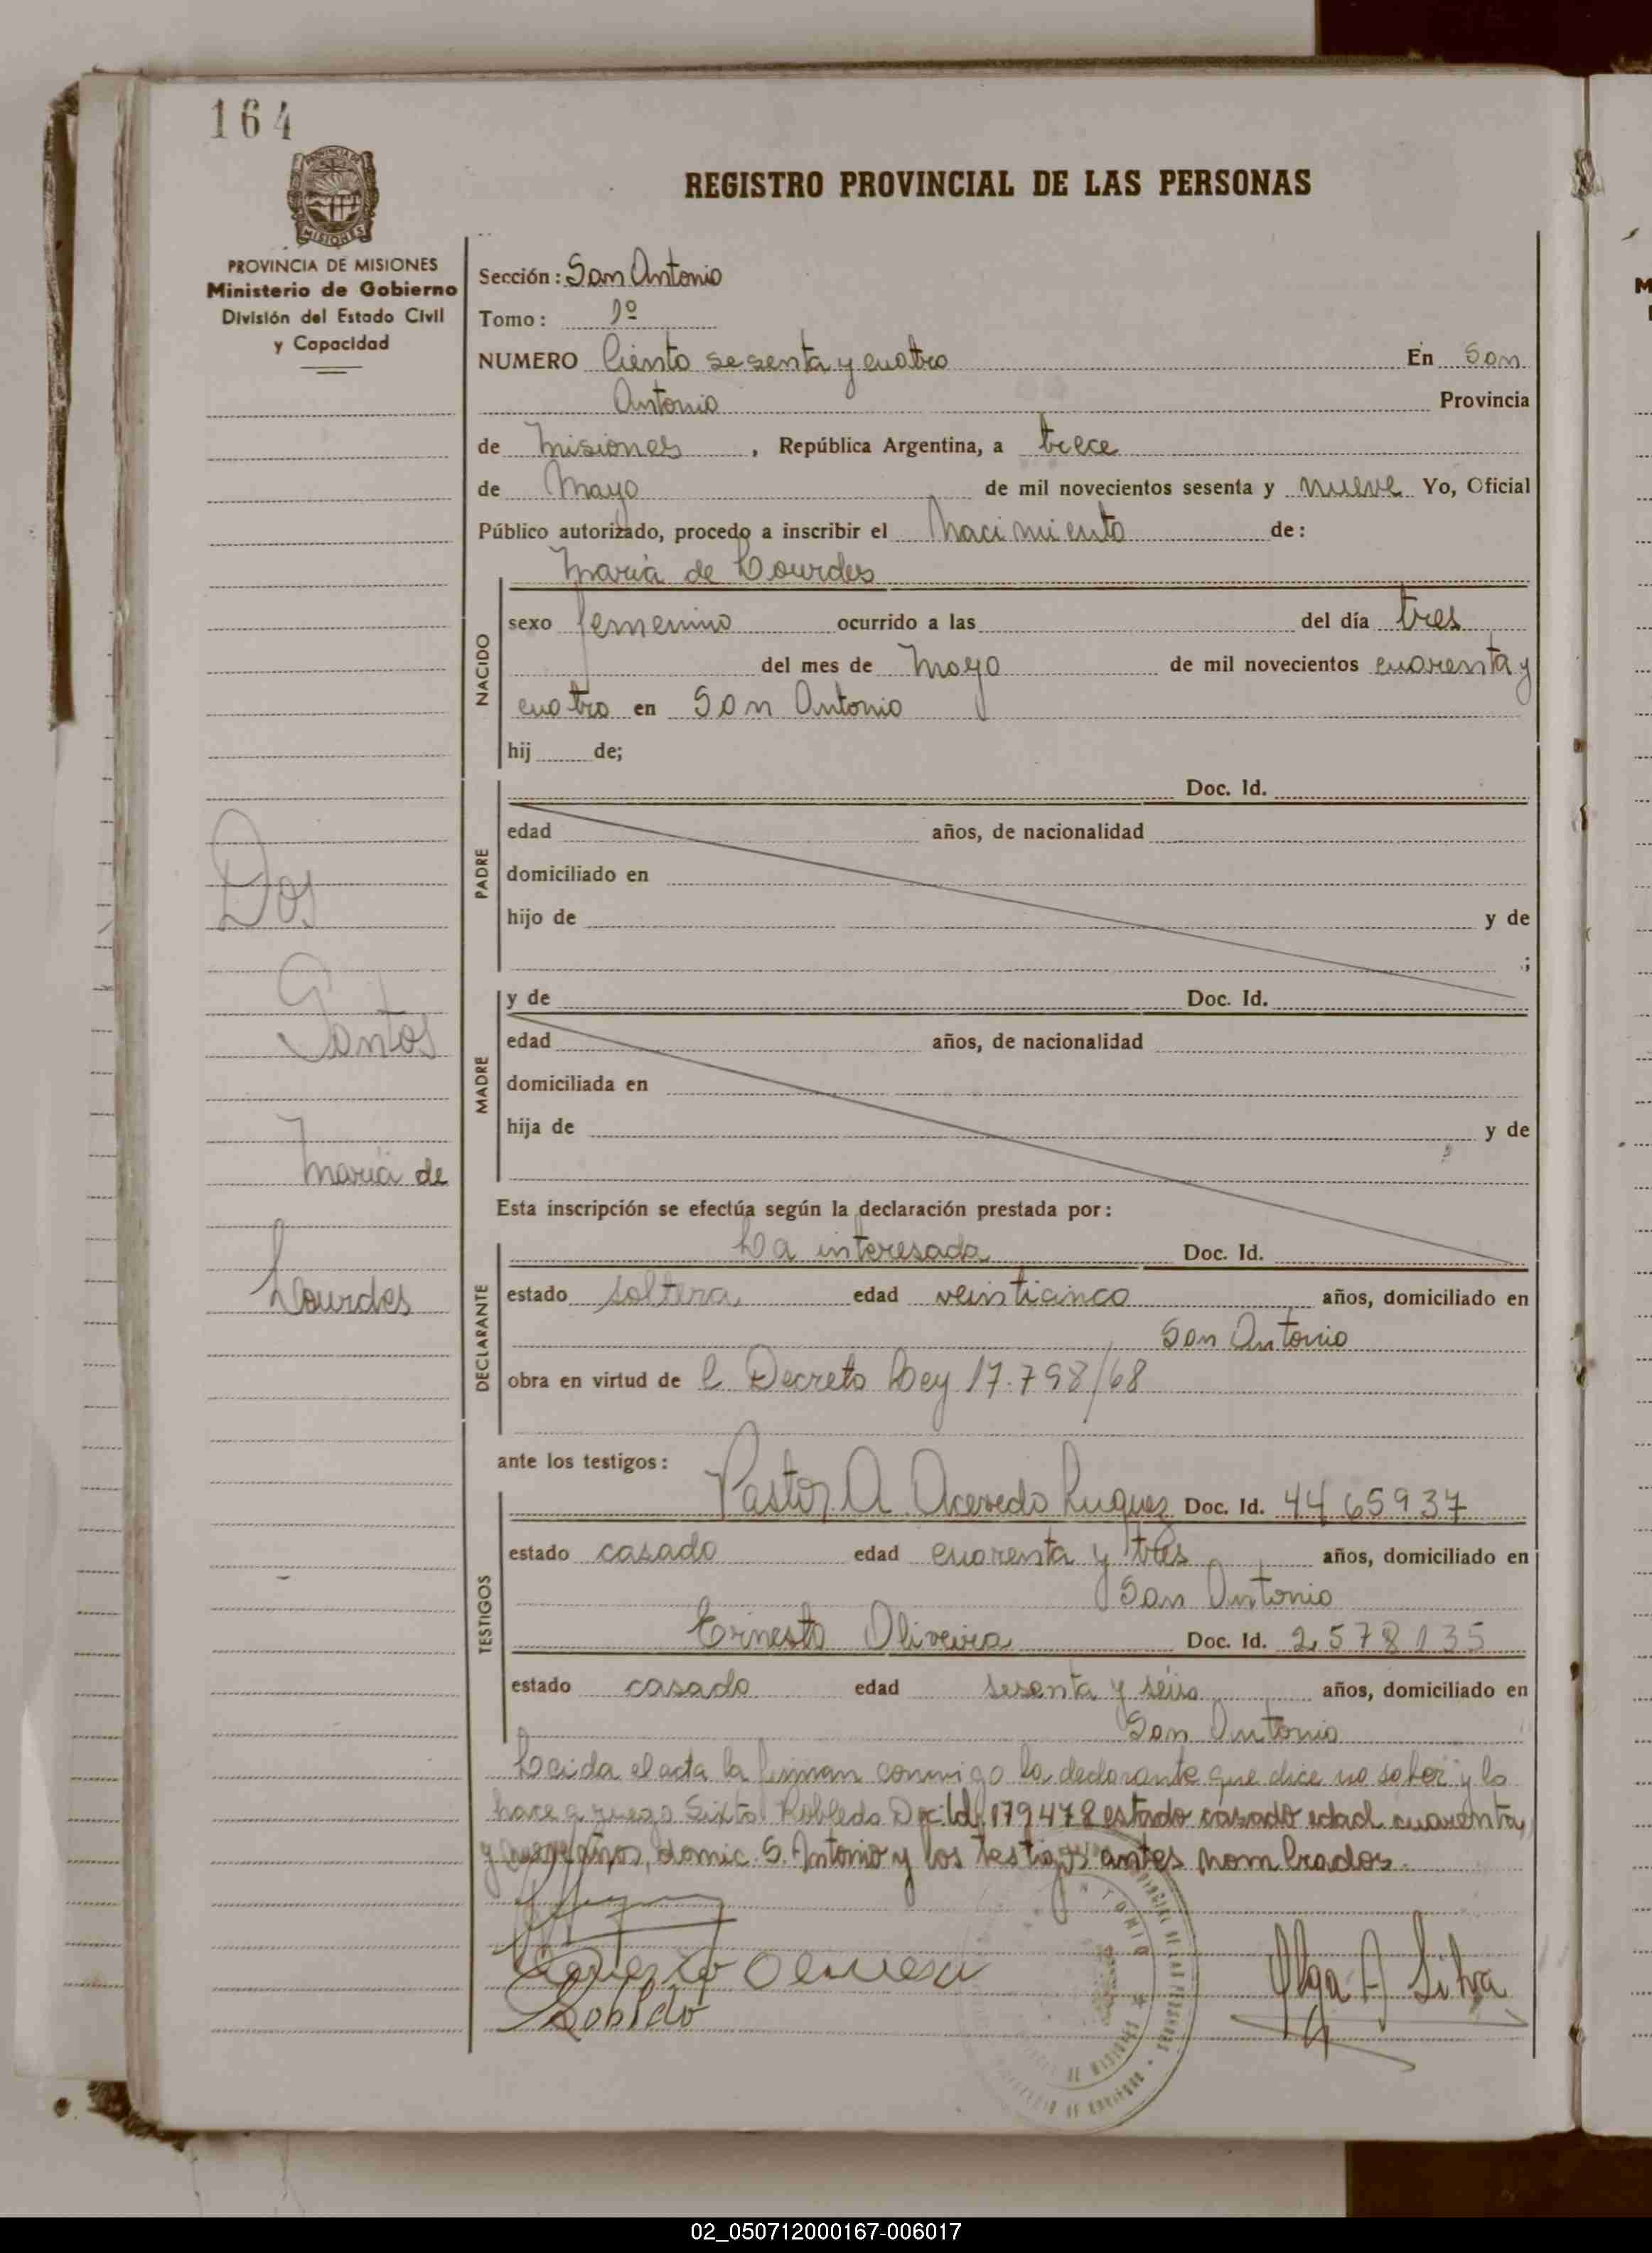 164
REGISTRO PROVINCIAL DE LAS PERSONAS
PROVINCIA DE MISIONES
MISIONES
PROVINCIA DE MISIONES
Ministerio de Gobierno
División del Estado Civil
y Capacidad
Dos
Santos
María de
Lourdes
Sección: San Antonio
Tomo: 1º
NUMERO Ciento sesenta y cuatro En San
Antonio Provincia
de Misiones, República Argentina, a trece
de Mayo de mil novecientos sesenta y nueve Yo, Oficial
Público autorizado, procedo a inscribir el Nacimiento de:
María de Lourdes
NACIDO
sexo femenino ocurrido a las del día tres
del mes de Mayo de mil novecientos cuarenta y
cuatro en San Antonio
hij de;
PADRE
Doc. Id.
edad años, de nacionalidad
domiciliado en
hijo de y de
;
MADRE
y de Doc. Id.
edad años, de nacionalidad
domiciliada en
hija de y de
Esta inscripción se efectúa según la declaración prestada por:
DECLARANTE
La interesada Doc. Id.
estado soltera edad veinticinco años, domiciliado en
San Antonio
obra en virtud de l Decreto Ley 17.798/68
ante los testigos:
TESTIGOS
Pastor A. Acevedo Luquez Doc. Id. 4465937
estado casado edad cuarenta y tres años, domiciliado en
San Antonio
Ernesto Oliveira Doc. Id. 2.578135
estado casado edad sesenta y séis años, domiciliado en
San Antonio
Leida el acta la firman conmigo la declarante que dice no saber y lo
hace a ruego Sixto Robledo Doc. Id. 179478 estado casado edad cuarenta
y años, domic. S. Antonio y los testigos antes nombrados.
Robledo
Olga A Silva
02_050712000167-006017